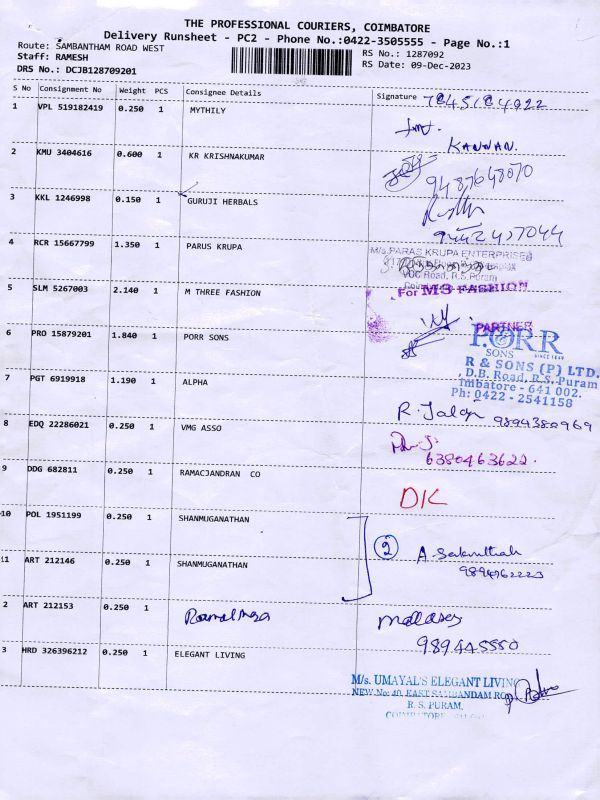 THE PROFESSIONAL COURIERS, COIMBATORE
Delivery Runsheet - PC2 - Phone No.:0422-3505555 - Page No.:1
Route: SAMBANTHAM ROAD WEST
RS No.: 1287092
Staff: RAMESH
RS Date: 09-Dec-2023
DRS No.: DCJB128709201
S No Consignment No Weight PCS Consignee Details Signature
1 VPL 519182419 0.250 1 MYTHILY
KANNAN.
2 KMU 3404616 0.600 1 KR KRISHNAKUMAR
9487648070
3 KKL 1246998 0.150 1 GURUJI HERBALS
4 RCR 15667799 1.350 1 PARUS KRUPA
M/s.PARAS KRUPA ENTERPRISES
VCC Road, R.S. Puram
5 SLM 5267003 2.140 1 M THREE FASHION
For M3 FASHION
PARTNER
6 PRO 15879201 1.840 1 PORR SONS
P.ORR
SONS SINCE 1849
R & SONS (P) LTD.
, D.B. Road, R.S. Puram
imbatore - 641 002.
Ph: 0422 - 2541158
7 PGT 6919918 1.190 1 ALPHA
R. 9894380969
8 EDQ 22286021 0.250 1 VMG ASSO
6380463622.
9 DDG 682811 0.250 1 RAMACJANDRAN CO
DK
10 POL 1951199 0.250 1 SHANMUGANATHAN
2
11 ART 212146 0.250 1 SHANMUGANATHAN
A.
2 ART 212153 0.250 1
989445550
3 HRD 326396212 0.250 1 ELEGANT LIVING
M/s. UMAYAL'S ELEGANT LIVING
NEW No: 40, EAST SAMBANDAM RO
R. S. PURAM,
COIMBATORE